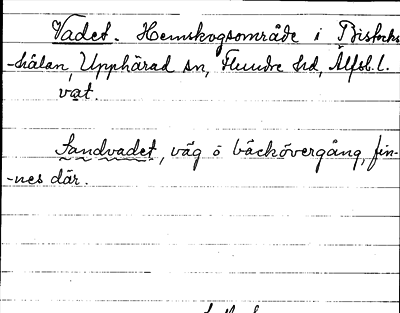 Vadet. Hemskogsområde i Bistocks-
-hålan, Upphärad sn, Flundre hd, Älfsb. l.
vat.
Sandvadet, väg o bäckövergång, fin-
-nes där.